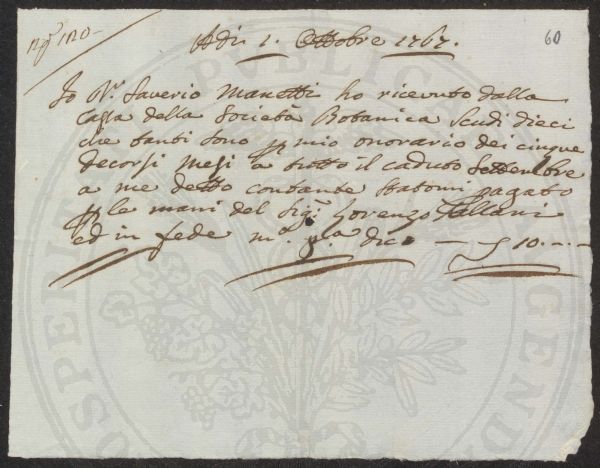 N.º 120
60
Adi 1. Ottobre 1767.
Io D.r Saverio Manetti ho ricevuto dalla
Cassa della Società Botanica Scudi dieci
che tanti sono p mio onorario dei cinque
decorsi Mesi a tutto il caduto Settembre
a me detto contante statomi pagato
p le mani del Sig.r Lorenzo
ed in fede m.o p.a dico — S 10.---
PUBLICA
PROSPERITATI AUGENDAE